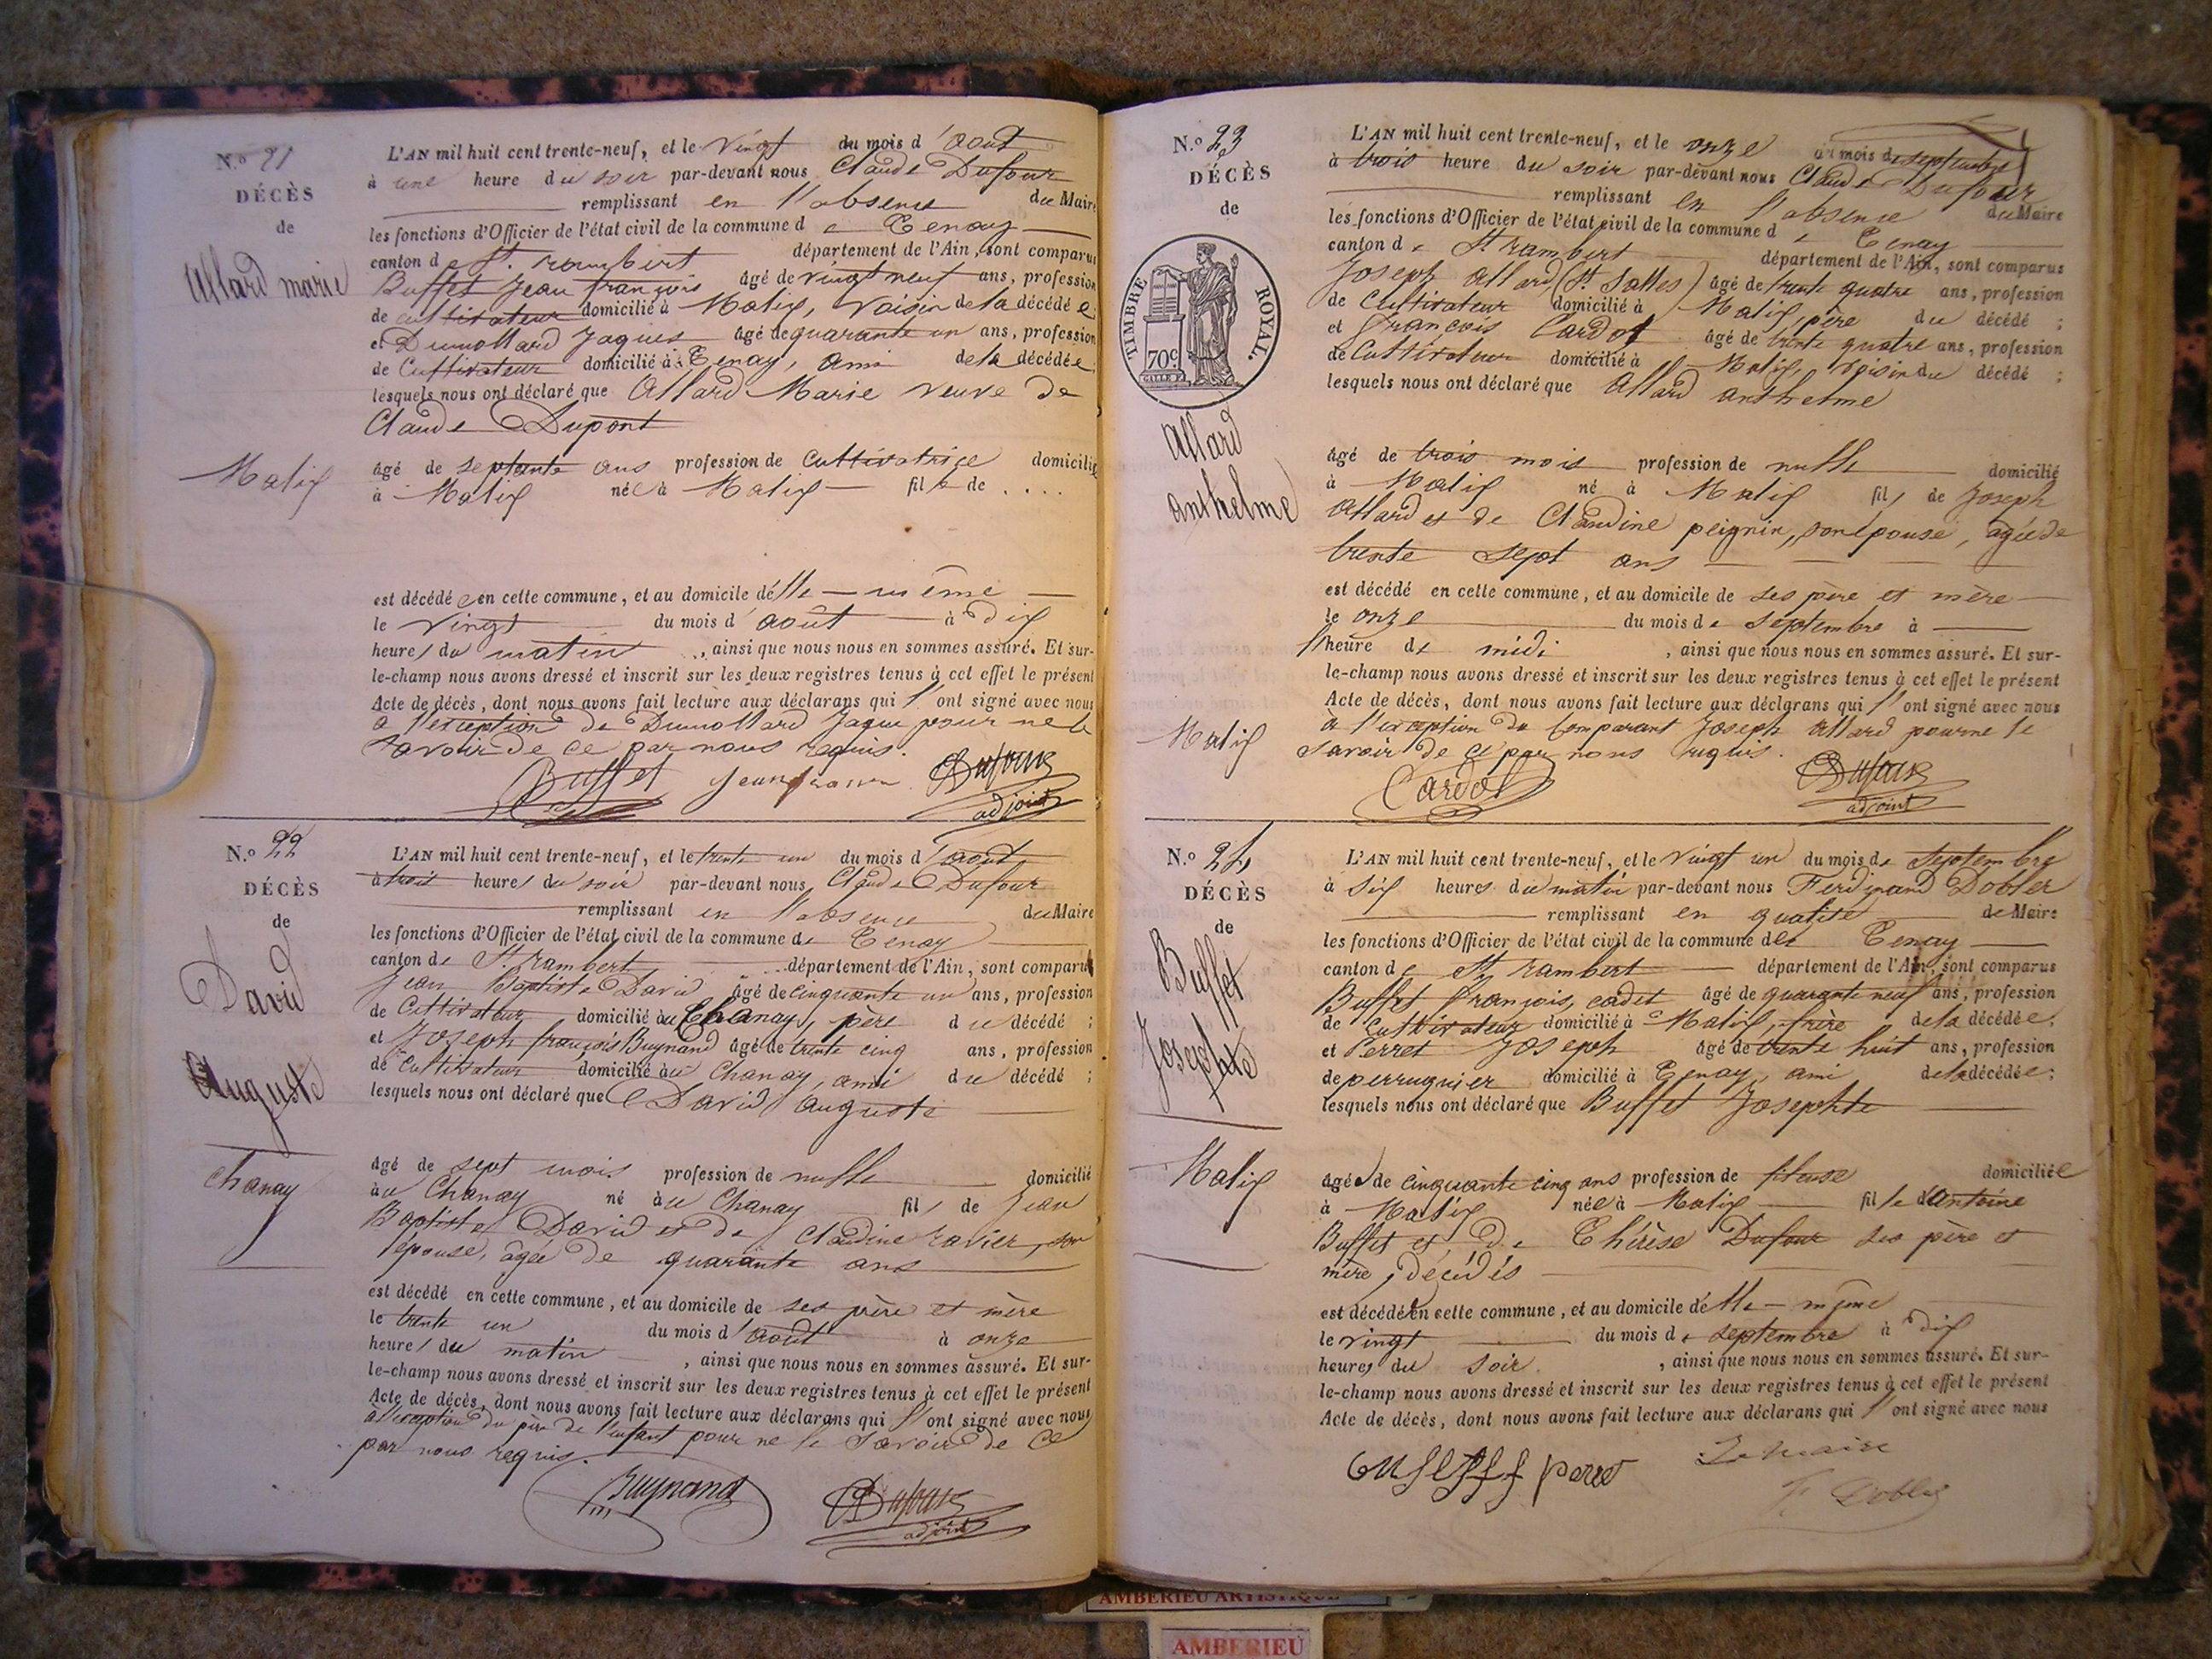 N.o 21
DÉCÈS
de
Allard marie
Malix
L'AN mil huit cent trente-neuf, et le Vingt du mois d'août
à une heure du soir par-devant nous Claude Dufour
remplissant en l'absence du Maire
les fonctions d'Officier de l'état civil de la commune de Tenay
canton de St. rambert département de l'Ain, sont comparus
Buffet Jean françois âgé de vingt neuf ans, profession
de cultivateur domicilié à Malix, Voisin de la décédée;
et Dumollard Jaques âgé de quarante un ans, profession
de Cultivateur domicilié à Tenay, ami de la décédée;
lesquels nous ont déclaré que Allard Marie veuve de
Claude Dupont
âgé de septante ans profession de Cultivatrice domicilié
à Malix née à Malix fille de ....
est décédée en cette commune, et au domicile d'elle-même
le Vingt du mois d'août à dix
heures du matin, ainsi que nous nous en sommes assuré. Et sur-
le-champ nous avons dressé et inscrit sur les deux registres tenus à cet effet le présent
Acte de décès, dont nous avons fait lecture aux déclarans qui l'ont signé avec nous
a l'exception de Dumollard Jaque pour ne le
savoir de ce par nous requis.
Buffet Jean fran Dufour
adjoint
N.o 22
DÉCÈS
de
David
Auguste
Chanay
L'AN mil huit cent trente-neuf, et le trente un du mois d'août
à trois heures du soir par-devant nous Claude Dufour
remplissant en l'absence du Maire
les fonctions d'Officier de l'état civil de la commune de Tenay
canton de St. rambert département de l'Ain, sont comparus
Jean Baptiste David âgé de cinquante un ans, profession
de Cultivateur domicilié au Chanay, père du décédé;
et Joseph françois Buynand âgé de trente cinq ans, profession
de Cultivateur domicilié au Chanay, ami du décédé;
lesquels nous ont déclaré que David Auguste
âgé de sept mois profession de nulle domicilié
au Chanay né au Chanay fils de Jean
Baptiste David et de Claudine ravier, son
épouse, agée de quarante ans
est décédé en cette commune, et au domicile de ses père et mère
le trente un du mois d'août à onze
heures du matin, ainsi que nous nous en sommes assuré. Et sur-
le-champ nous avons dressé et inscrit sur les deux registres tenus à cet effet le présent
Acte de décès, dont nous avons fait lecture aux déclarans qui l'ont signé avec nous
a l'exception du père de l'enfant pour ne le savoir de ce
par nous requis.
Buynand Dufour
adjoint
N.o 23
DÉCÈS
de
TIMBRE ROYAL.
70c
Allard
anthelme
Malix
L'AN mil huit cent trente-neuf, et le onze du mois de septembre
à trois heure du soir par-devant nous Claude Dufour
remplissant en l'absence du Maire
les fonctions d'Officier de l'état civil de la commune de Tenay
canton de St. rambert département de l'Ain, sont comparus
Joseph allard (St. Salles) âgé de trente quatre ans, profession
de Cultivateur domicilié à Malix, père du décédé;
et françois Cardot âgé de trente quatre ans, profession
de Cultivateur domicilié à Malix, voisin du décédé;
lesquels nous ont déclaré que Allard anthelme
âgé de trois mois profession de nulle domicilié
à Malix né à Malix fils de Joseph
allard et de Claudine peignin, son épouse, agée de
trente sept ans
est décédé en cette commune, et au domicile de ses père et mère
le onze du mois de septembre à
l'heure de midi, ainsi que nous nous en sommes assuré. Et sur-
le-champ nous avons dressé et inscrit sur les deux registres tenus à cet effet le présent
Acte de décès, dont nous avons fait lecture aux déclarans qui l'ont signé avec nous
a l'exception du comparant Joseph allard pour ne le
savoir de ce par nous requis.
Cardot Dufour
adjoint
N.o 24
DÉCÈS
de
Buffet
Josephte
Malix
L'AN mil huit cent trente-neuf, et le vingt un du mois de septembre
à six heures du matin par-devant nous Ferdinand Dobler
remplissant en qualité de Maire
les fonctions d'Officier de l'état civil de la commune de Tenay
canton de St. rambert département de l'Ain, sont comparus
Buffet françois, cadet âgé de quarante neuf ans, profession
de Cultivateur domicilié à Malix, frère de la décédée;
et Perret Joseph âgé de trente huit ans, profession
de perruquier domicilié à Tenay, ami de la décédée;
lesquels nous ont déclaré que Buffet Josephte
âgée de cinquante cinq ans profession de fileuse domiciliée
à Malix née à Malix fille d'Antoine
Buffet et de Thérèse Dufour ses père et
mère, décédés
est décédée en cette commune, et au domicile d'elle-même
le vingt du mois de septembre à dix
heures du soir, ainsi que nous nous en sommes assuré. Et sur-
le-champ nous avons dressé et inscrit sur les deux registres tenus à cet effet le présent
Acte de décès, dont nous avons fait lecture aux déclarans qui l'ont signé avec nous
perret Le maire
F. Dobler
AMBERIEU ARTISTIQUE
AMBERIEU